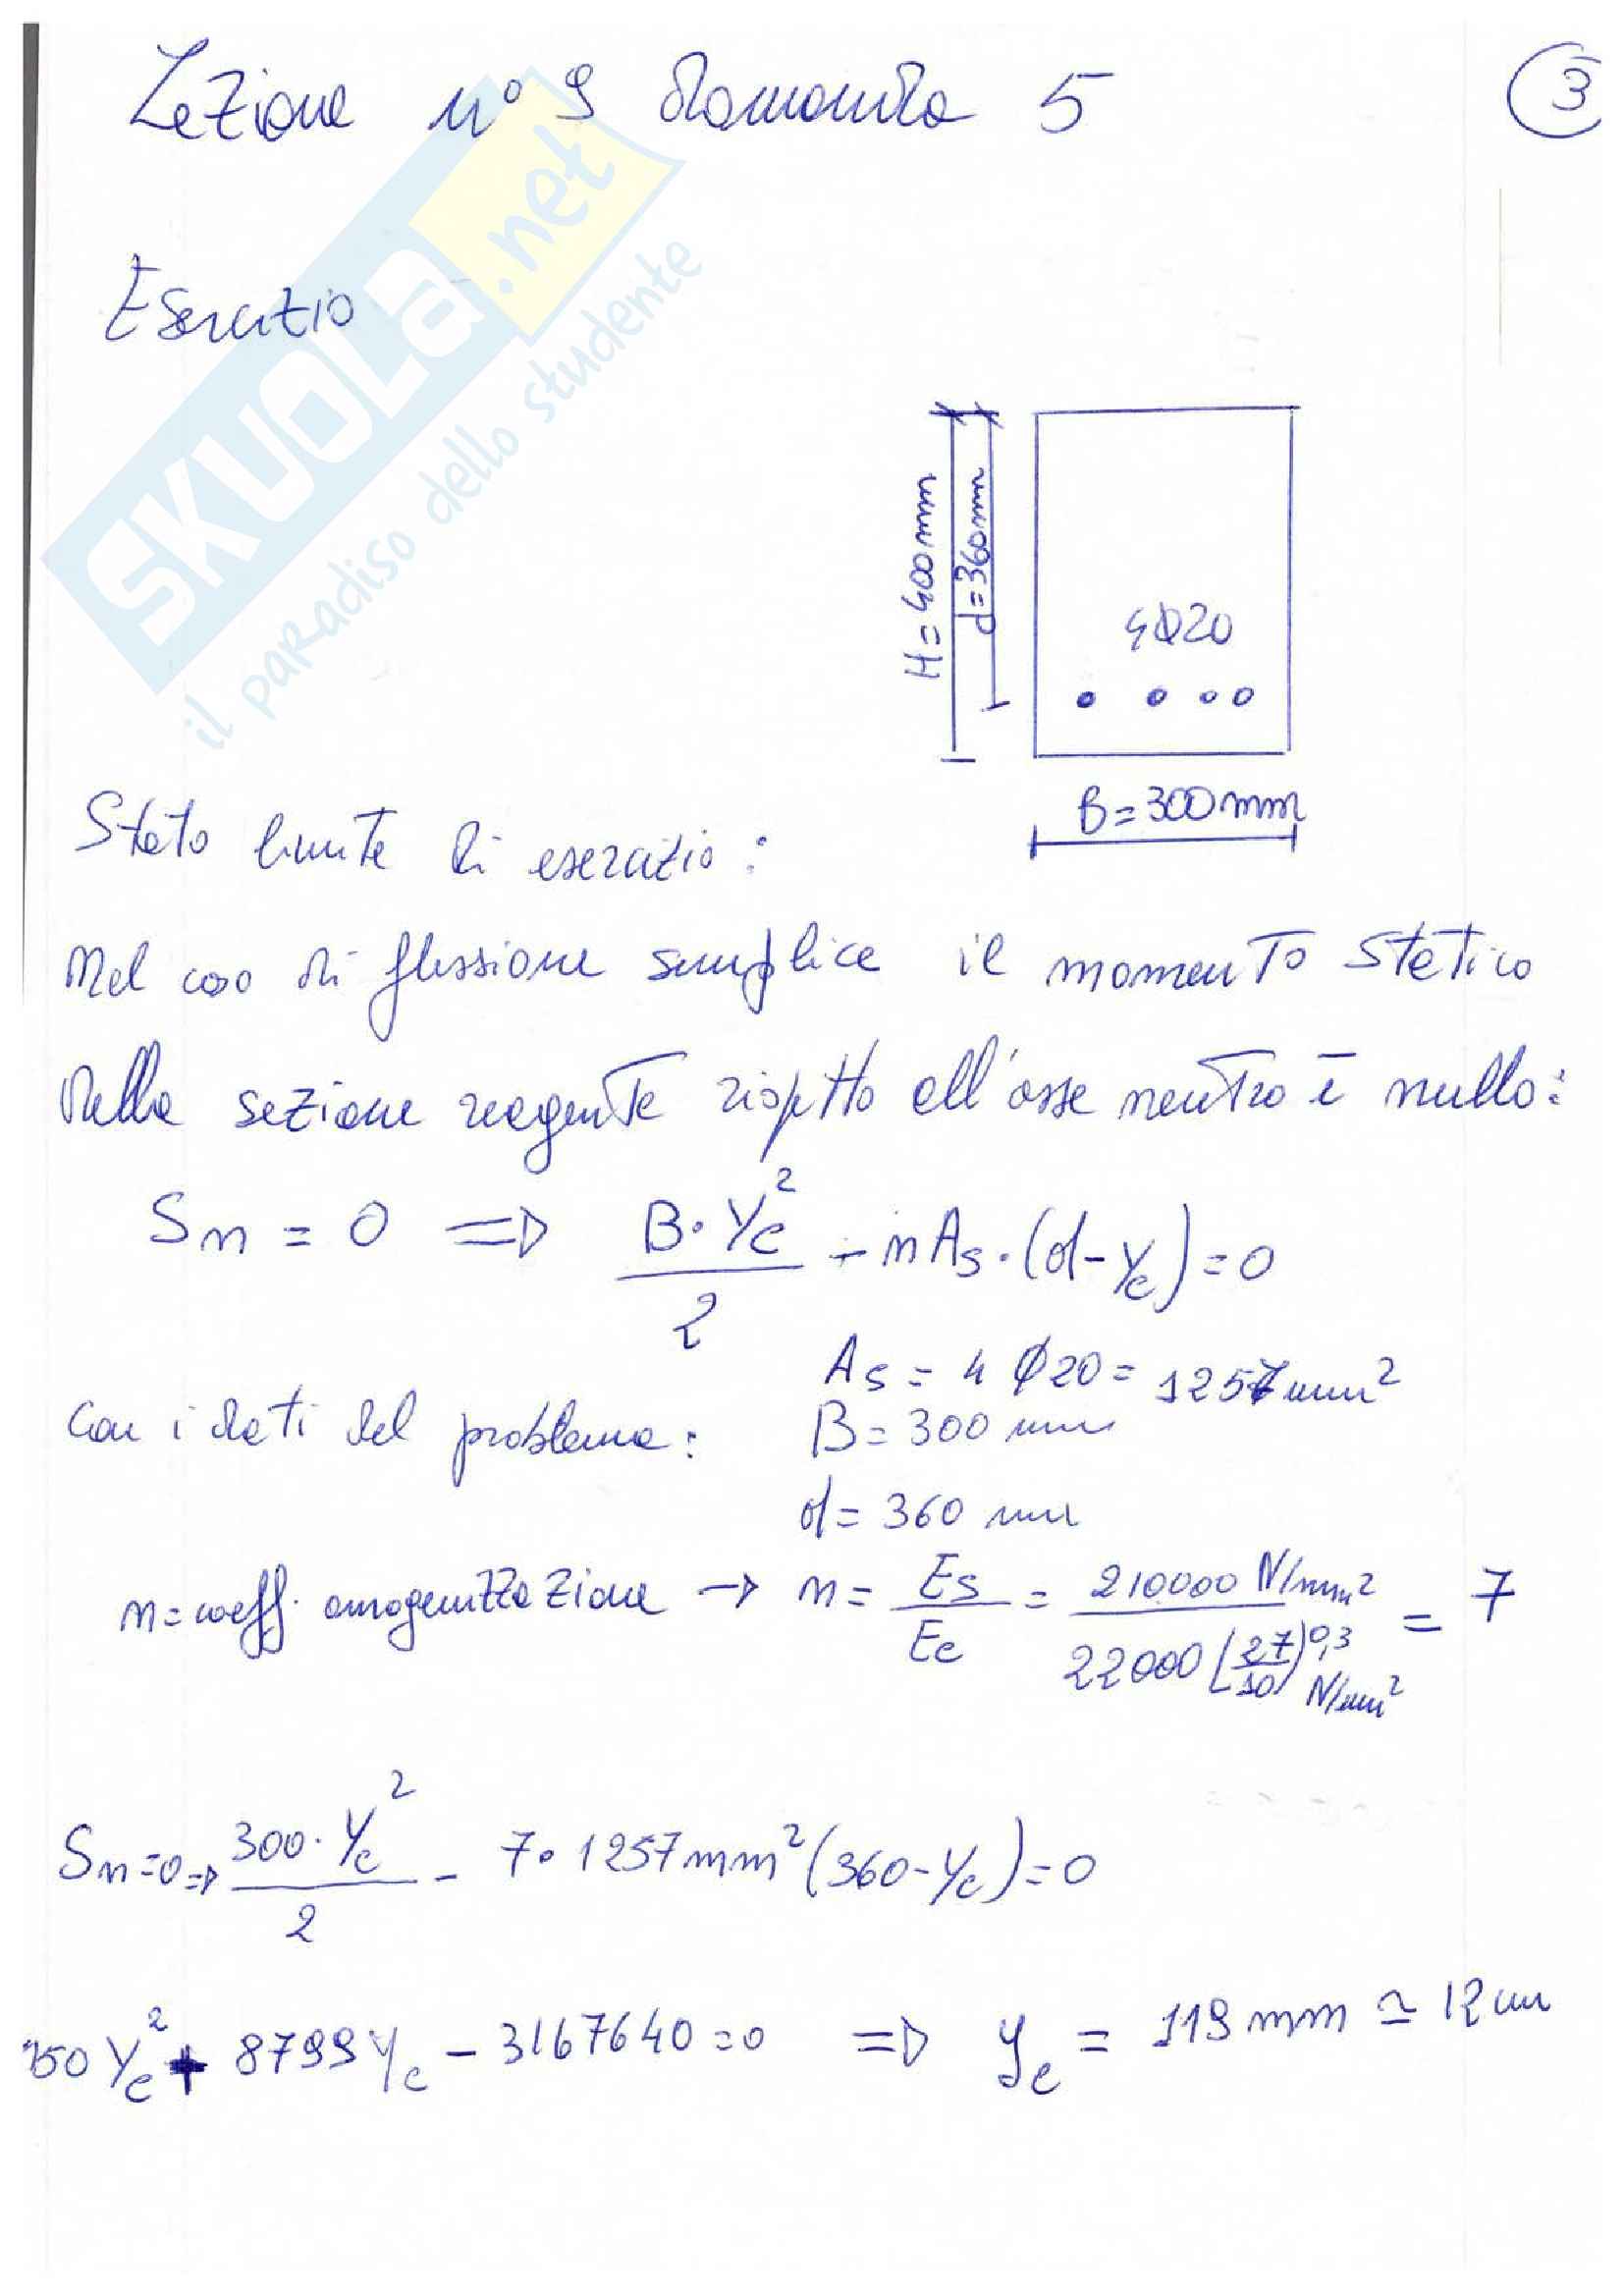 Lezione n° 9 domanda 5
3
Esercizio
SKUOLA.net
il paradiso dello studente
H=400mm
d=360mm
4Φ20
B=300mm
Stato limite di esercizio:
Nel caso di flessione semplice il momento statico
della sezione reagente rispetto all'asse neutro è nullo:
Sn = 0 => B·Yc²/2 - nAs·(d-Yc)=0
As = 4 Φ20 = 1257mm²
con i dati del problema: B=300 mm
d=360 mm
n=coeff. omogenizzazione → n= Es/Ec = 210000 N/mm² / 22000 (27/10)^0,3 N/mm² = 7
Sn=0 => 300·Yc²/2 - 7·1257mm²(360-Yc)=0
150 Yc² + 8799 Yc - 3167640=0 => yc = 119mm ≃ 12cm